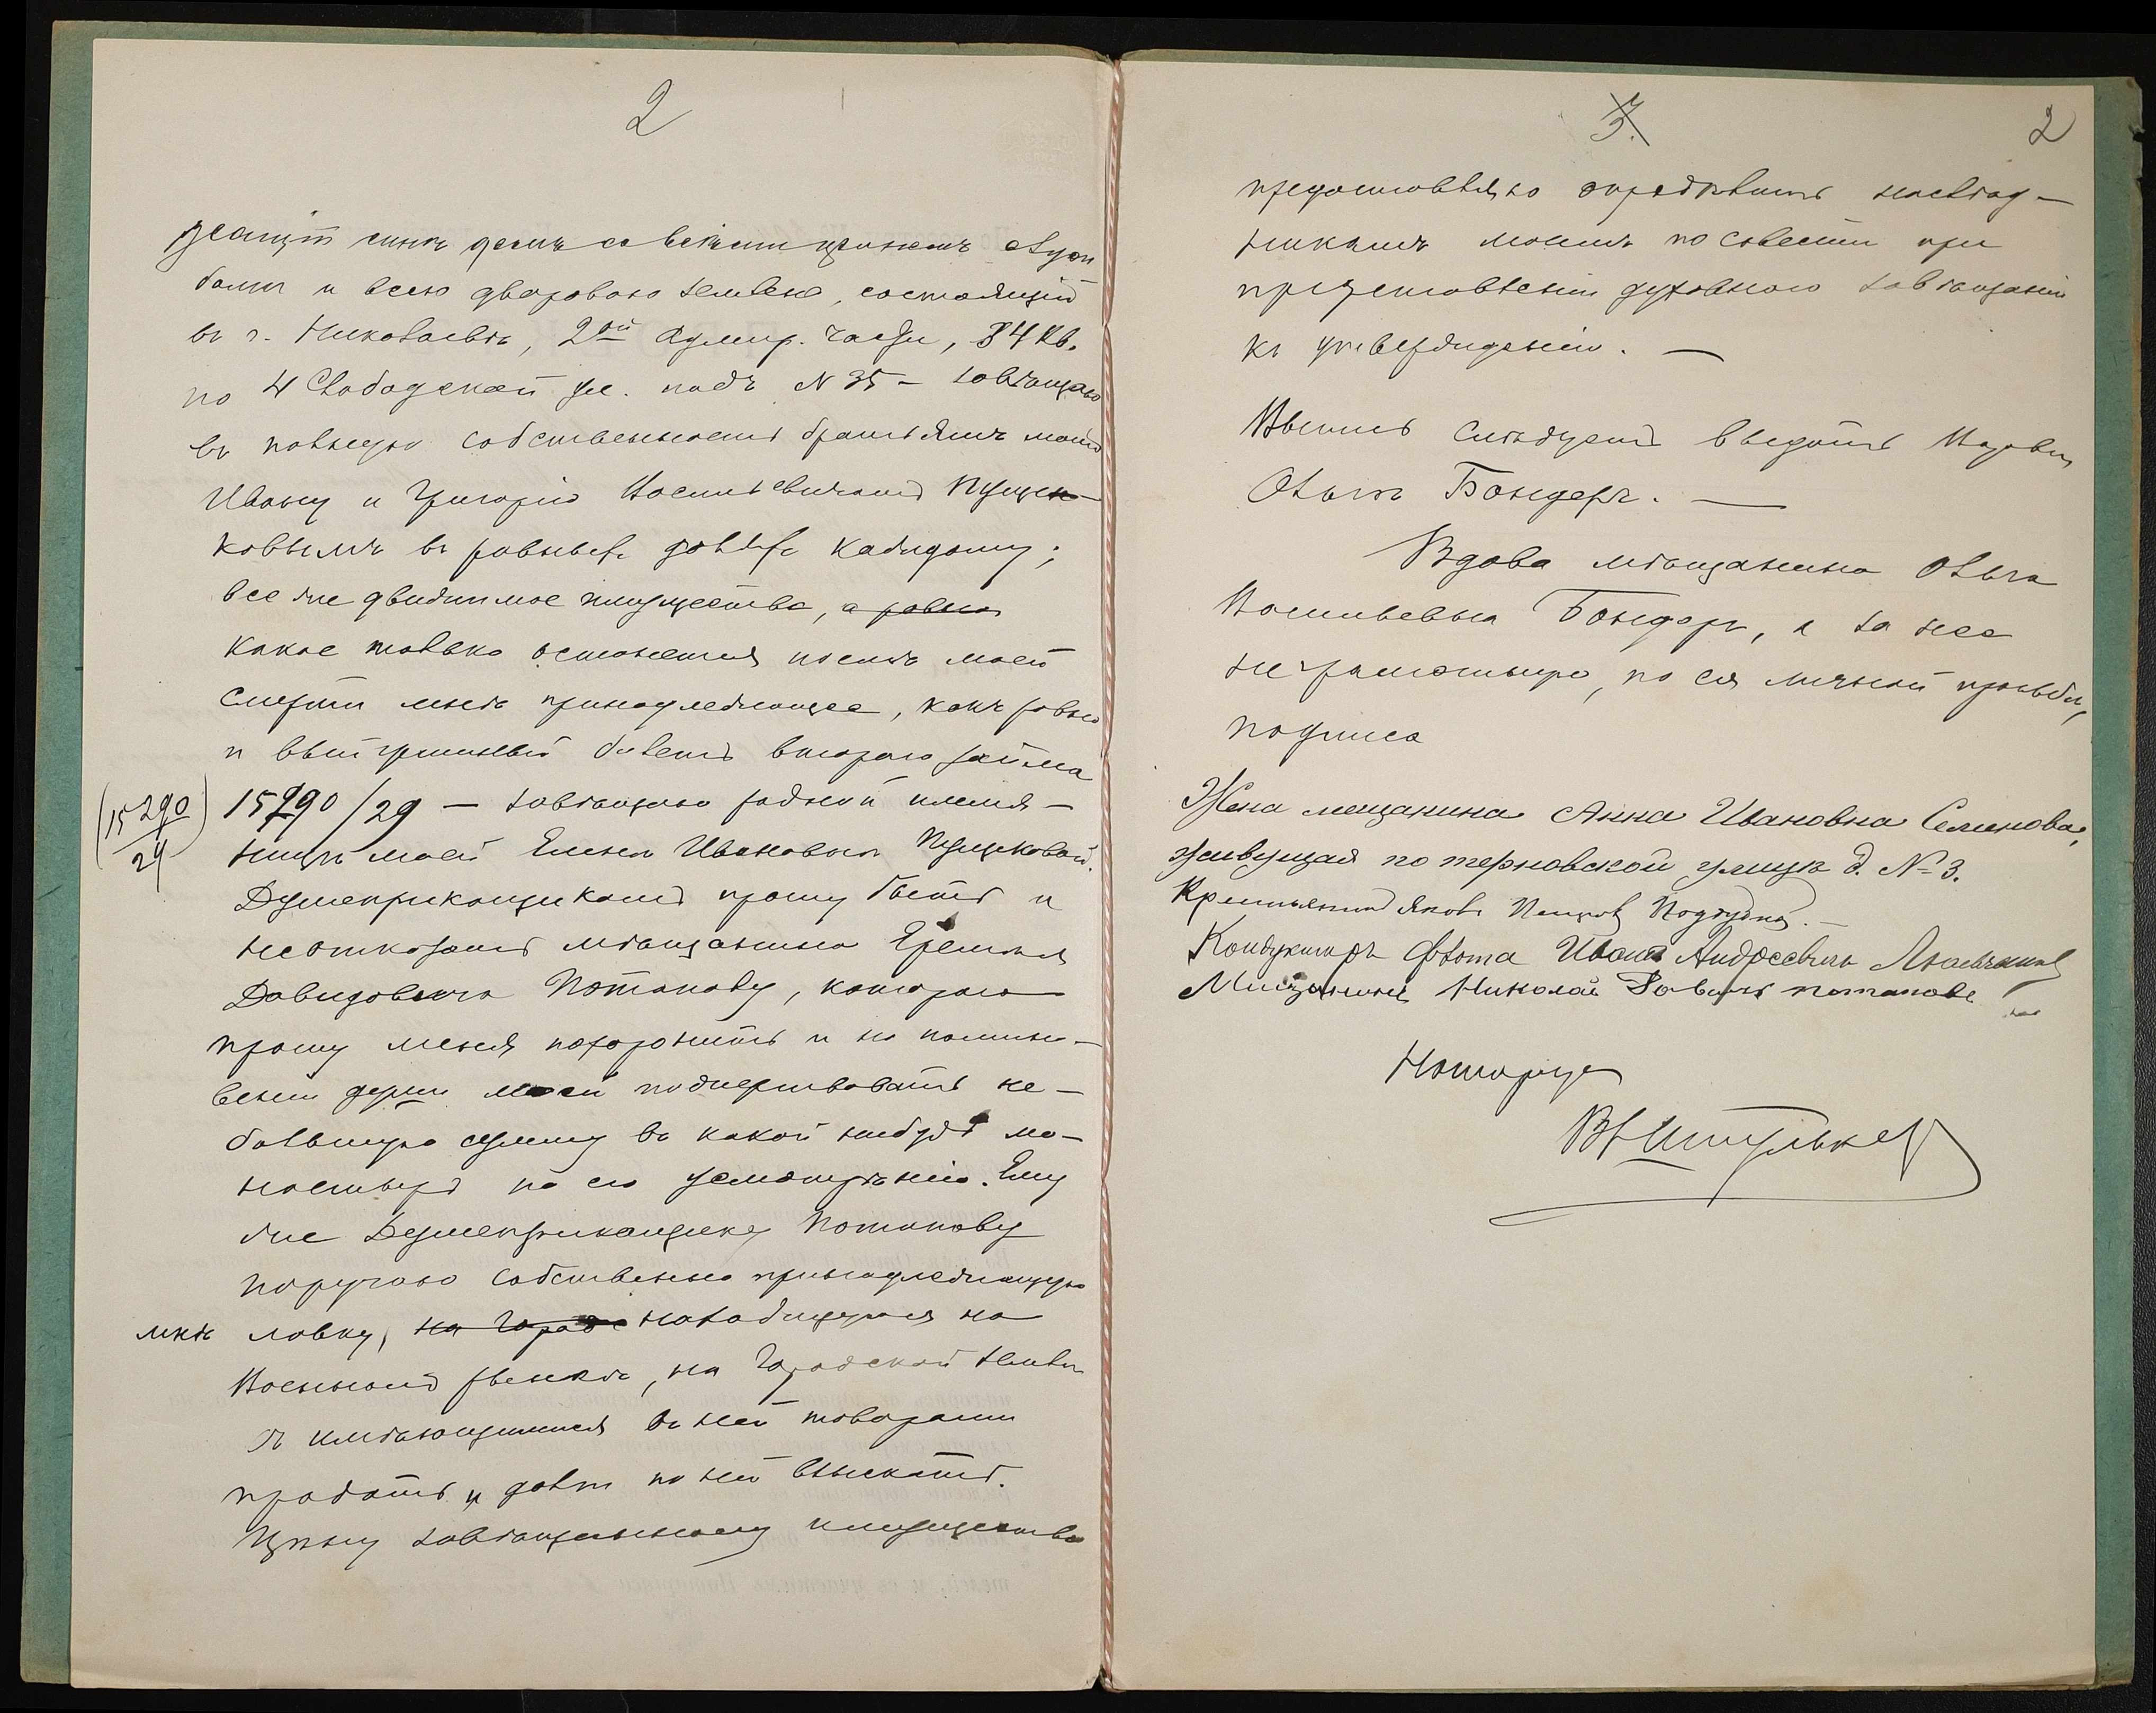 2
домъ со всѣми при немъ служ-
бами и всею дворовою землею, состоящій
въ г. Николаевѣ, 2ой Адмир. части, 84 кв.
по 4 Слободской ул. подъ № 35 – завѣщаю
въ полную собственность братьямъ моимъ
Ивану и Григорію Васильевичамъ Пущен-
ковымъ въ равныхъ доляхъ каждому;
все же движимое имущество, а равно
какое только останется послѣ моей
смерти мнѣ принадлежащее, какъ равно
и выигрышный билетъ второго займа
(15290/29) 15290/29 – завѣщаю родной племян-
ницѣ моей Еленѣ Ивановнѣ Пущенковой.
Душеприкащикомъ прошу быть и
не отказать мѣщанина Еремѣя
Давидовича Потапову, котораго
прошу меня похоронить и на помино-
веніе души моей пожертвовать не-
большую сумму въ какой нибудь мо-
настырь по его усмотрѣнію. Ему
же Душеприкащику Потапову
поручаю собственно принадлежащую
мнѣ лавку, на Городс находящуюся на
Военномъ рынкѣ, на Городской земли
съ имѣющимися въ ней товарами
продать и долги по ней взыскать.
Цѣну завѣщанному имуществу
3. 2
предоставляю опредѣлить наслѣд-
никамъ моимъ по совести при
представленіи духовного завѣщанія
къ утвержденію. —
Выпись слѣдуетъ выдать Вдовѣ
Ольгѣ Бондарь. —
Вдова мѣщанина Ольга
Васильевна Бондарь, а за нее
неграмотную, по ея личной просьбѣ,
подписа
Жена мещанина Анна Ивановна Семенова,
живущая по терновской улицѣ д. № 3.
Крестьянинъ Яковъ Петровъ
Кондукторъ флота Иванъ Андреевичъ
Мищанинъ Николай Потаповъ
Нотаріусъ